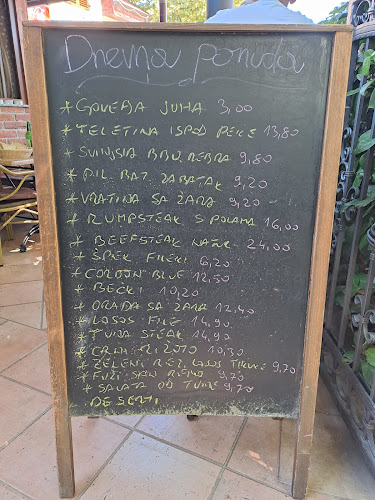 Dnevna ponuda
* GOVEĐA JUHA 3,00
* TELETINA ISPOD PEKE 13,80
* SVINJSKA BBQ REBRA 9,80
* PIL. BAT. ZABATAK 9,20
* VRATINA SA ŽARA 9,20
* RUMPSTEAK S POVRĆEM 16,00
* BEEFSTEAK NATUR 24,00
* ŠPEK FILEKI 6,20
* CORDON BLUE 12,50
* BEČKI 10,20
* ORADA SA ŽARA 12,40
* LOSOS FILE 14,90
* TUNA STEAK 14,90
* CRNI RIŽOTO 10,30
* ZELENI REZ. LOSOS TIKVICE 9,70
* FUŽI 9,70
* SALATA OD TUNE 9,20
DESERTI